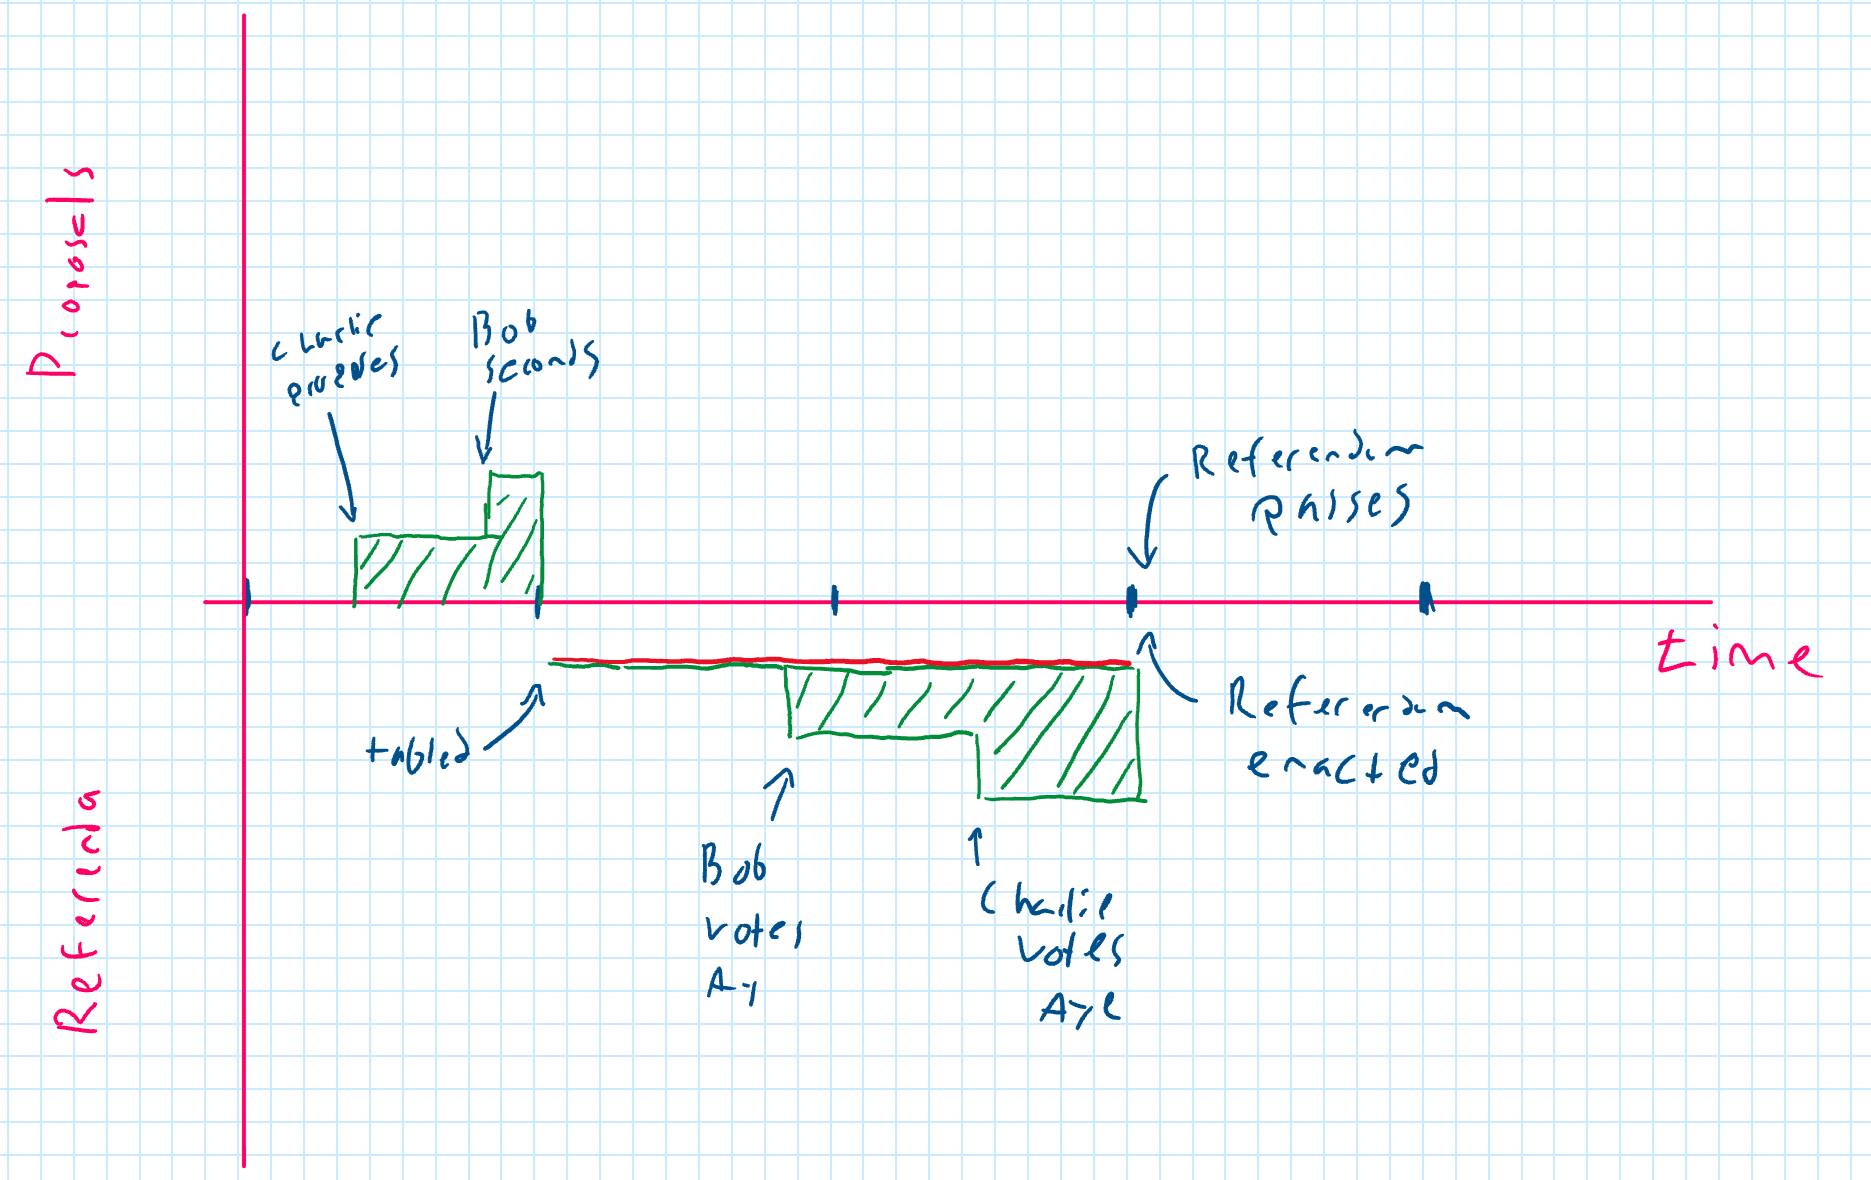 Proposals
Charlie
proposes
Bob
seconds
Referendum
passes
time
tabled
Referendum
enacted
Referenda
Bob
votes
Ay
Charlie
votes
Aye